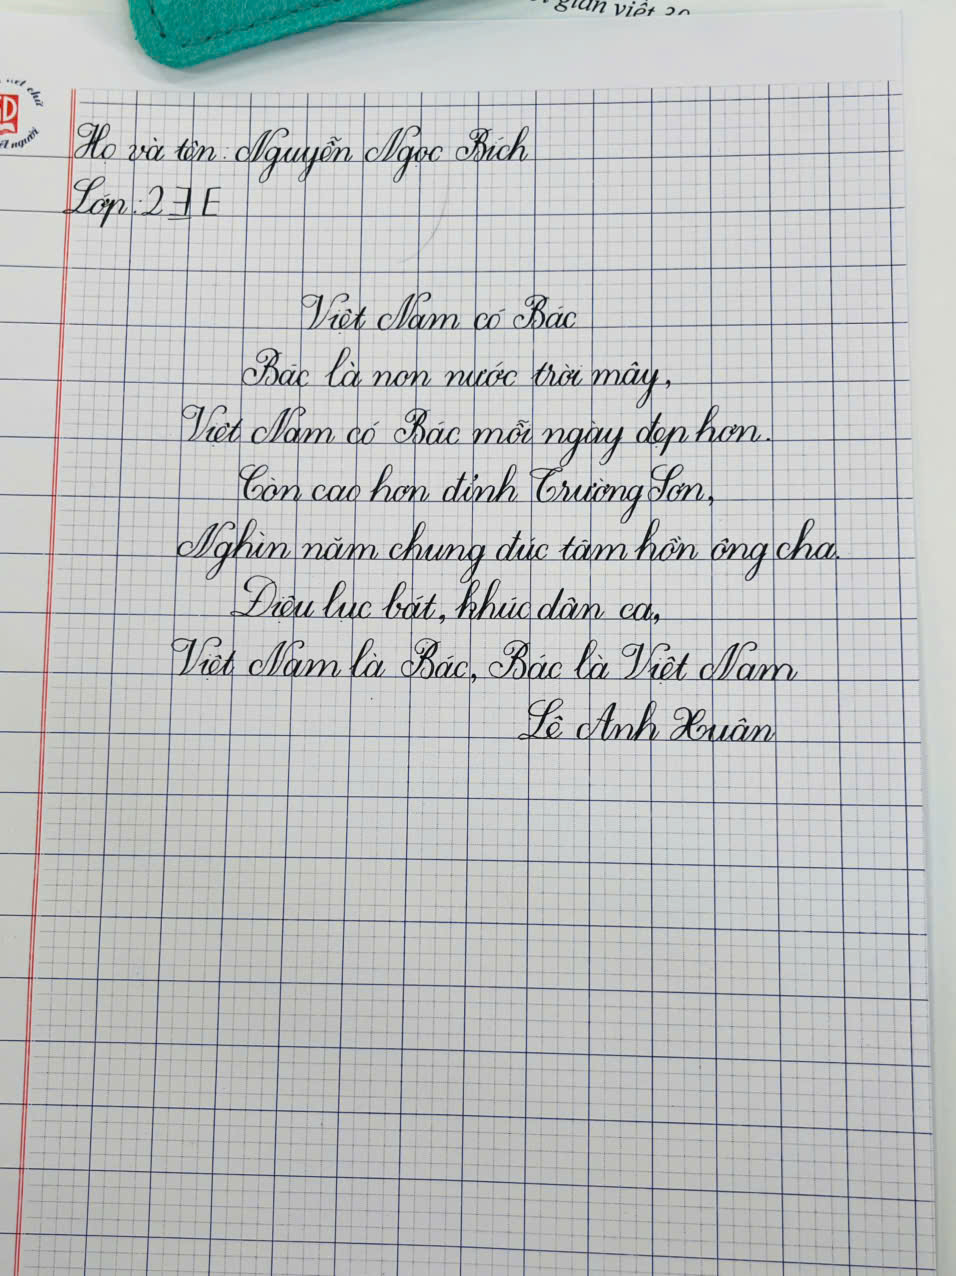 gian viết 20
Họ và tên: Nguyễn Ngọc Bích
Lớp: 2 E
Việt Nam có Bác
Bác là non nước trời mây,
Việt Nam có Bác mỗi ngày đẹp hơn.
Còn cao hơn đỉnh Trường Sơn,
Nghìn năm chung đúc tâm hồn ông cha.
Điệu lục bát, khúc dân ca,
Việt Nam là Bác, Bác là Việt Nam
Lê Anh Xuân